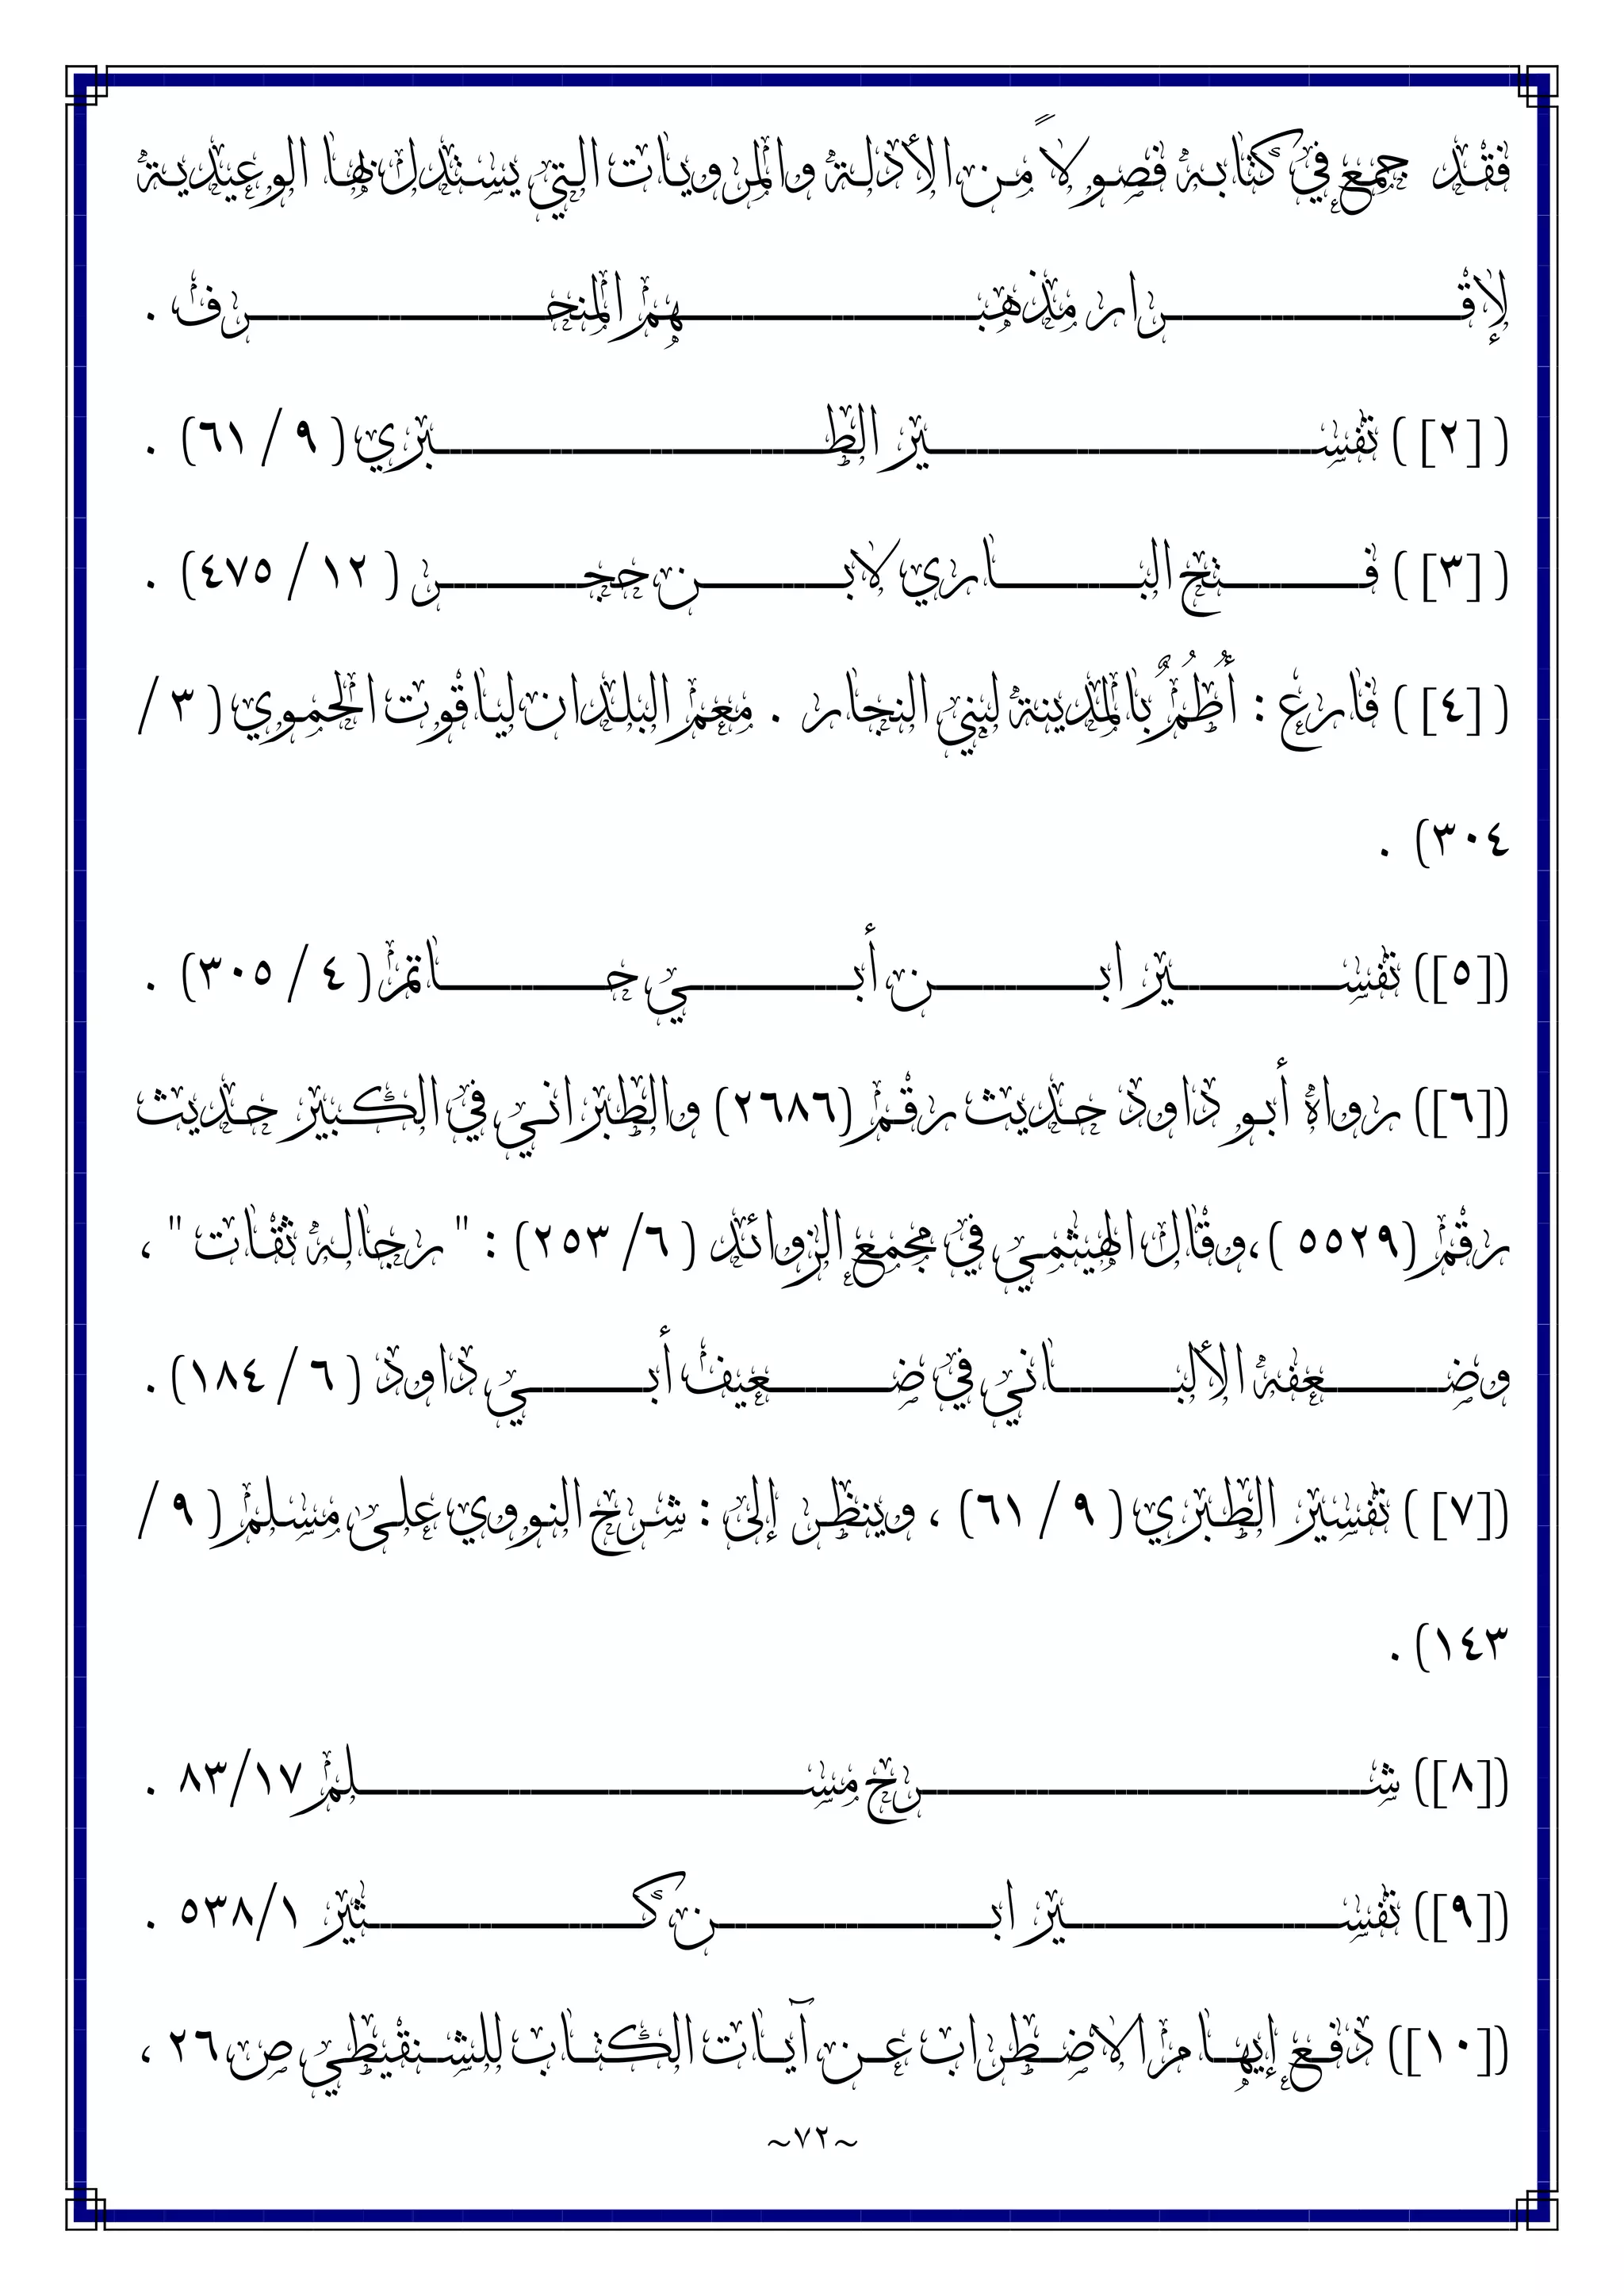 فقد جمع في كتابه فصولاً من الأدلة والمرويات التي يستدل بها الوعيدية
لإقرار مذهبهم المنحرف .
( [٢] ) تفسير الطبري ( ٩ / ٦١) .
( [٣] ) فتح الباري لابن حجر ( ١٢ / ٤٧٥) .
( [٤] ) فارع : أُطُمٌ بالمدينة لبني النجار . معم البلدان لياقوت الحموي ( ٣ /
٣٠٤) .
([٥]) تفسير ابن أبي حاتم ( ٤ / ٣٠٥) .
([٦]) رواه أبو داود حديث رقم (٢٦٨٦) والطبراني في الكبير حديث
رقم (٥٥٢٩ )،وقال الهيثمي في مجمع الزوائد ( ٦/ ٢٥٣) : " رجاله ثقات " ،
وضعفه الألباني في ضعيف أبي داود ( ٦ / ١٨٤) .
([٧] ) تفسير الطبري ( ٩ / ٦١) ، وينظر إلى : شرح النووي على مسلم ( ٩ /
١٤٣) .
([٨]) شرح مسلم ٨٣/١٧ .
([٩]) تفسير ابن كثير ٥٣٨/١ .
([١٠]) دفع إيهام الاضطراب عن آيات الكتاب للشنقيطي ص٢٦ ،
~٧٢~